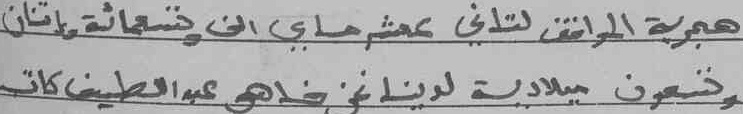 هجرية الموافق لثاني عشر ماي الف وتسعمائة واثنان
وتسعون ميلادية لدينا نحن عبد اللطيف كاتب